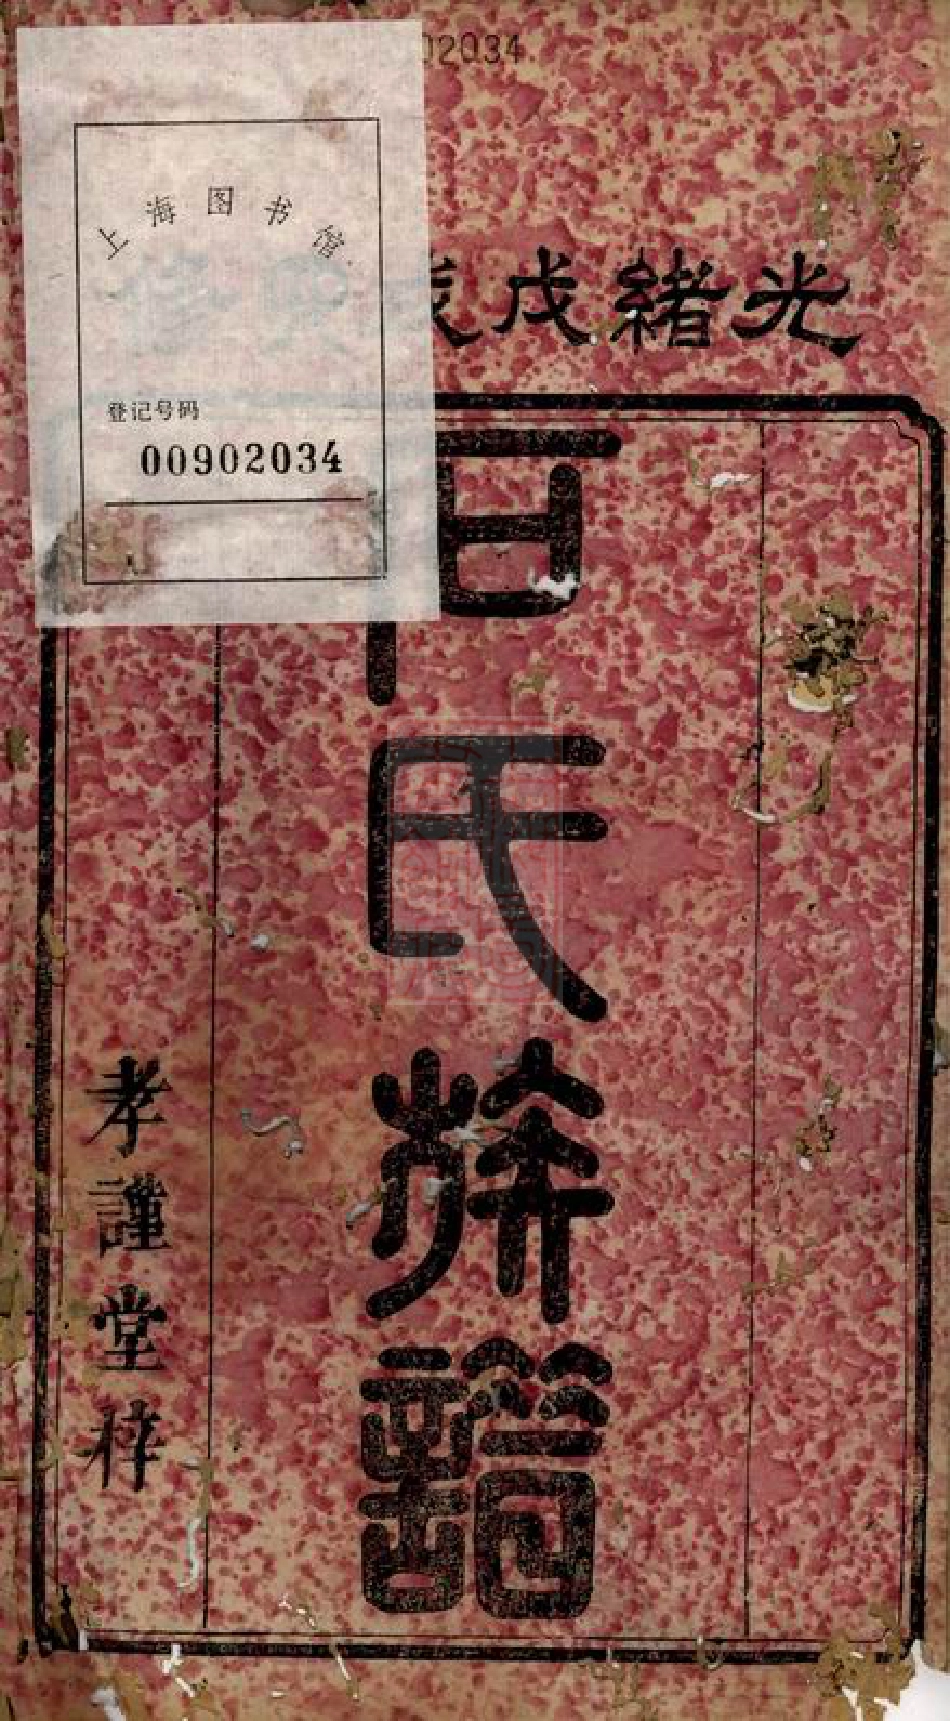 02034
上海图书馆
登记号码
00902034
光緒戊戌
石氏族譜
孝謹堂梓